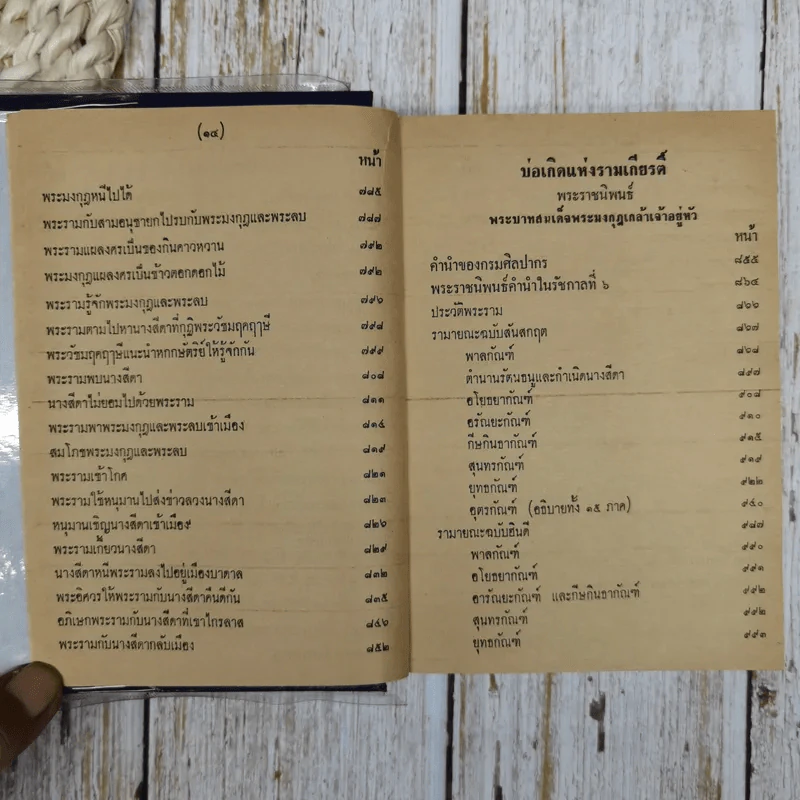 (๑๔)
หน้า
พระมงกุฎหนีไปได้ ๗๘๕
พระรามกับสามอนุชายกไปรบกับพระมงกุฎและพระลบ ๗๘๗
พระรามแผลงศรเป็นของกินคาวหวาน ๗๙๒
พระมงกุฎแผลงศรเป็นข้าวตอกดอกไม้ ๗๙๒
พระรามรู้จักพระมงกุฎและพระลบ ๗๙๖
พระรามตามไปหานางสีดาที่กุฎิพระวัชมฤคฤๅษี ๗๙๘
พระวัชมฤคฤๅษีแนะนำหกกษัตริย์ให้รู้จักกัน ๗๙๙
พระรามพบนางสีดา ๘๐๘
นางสีดาไม่ยอมไปด้วยพระราม ๘๑๑
พระรามพาพระมงกุฎและพระลบเข้าเมือง ๘๑๔
สมโภชพระมงกุฎและพระลบ ๘๑๙
พระรามเข้าโกศ ๘๒๑
พระรามใช้หนุมานไปส่งข่าวลวงนางสีดา ๘๒๓
หนุมานเชิญนางสีดาเข้าเมือง ๘๒๖
พระรามเกี้ยวนางสีดา ๘๒๙
นางสีดาหนีพระรามลงไปอยู่เมืองบาดาล ๘๓๒
พระอิศวรให้พระรามกับนางสีดาคืนดีกัน ๘๓๕
อภิเษกพระรามกับนางสีดาที่เขาไกรลาส ๘๔๖
พระรามกับนางสีดากลับเมือง ๘๕๒
บ่อเกิดแห่งรามเกียรติ์
พระราชนิพนธ์
พระบาทสมเด็จพระมงกุฎเกล้าเจ้าอยู่หัว
หน้า
คำนำของกรมศิลปากร ๘๕๕
พระราชนิพนธ์คำนำในรัชกาลที่ ๖ ๘๖๔
ประวัติพระราม ๘๖๖
รามายณะฉบับสันสกฤต ๘๖๗
พาลกัณฑ์ ๘๖๘
ตำนานรัตนธนูและกำเนิดนางสีดา ๘๙๗
อโยธยากัณฑ์ ๙๐๘
อรัณยะกัณฑ์ ๙๑๐
กีษกินธากัณฑ์ ๙๑๕
สุนทรกัณฑ์ ๙๑๙
ยุทธกัณฑ์ ๙๒๒
อุตรกัณฑ์ (อธิบายทั้ง ๑๕ ภาค) ๙๔๐
รามายณะฉบับฮินดี ๙๘๗
พาลกัณฑ์ ๙๙๐
อโยธยากัณฑ์ ๙๙๑
อารัณยะกัณฑ์ และกีษกินธากัณฑ์ ๙๙๒
สุนทรกัณฑ์ ๙๙๒
ยุทธกัณฑ์ ๙๙๓